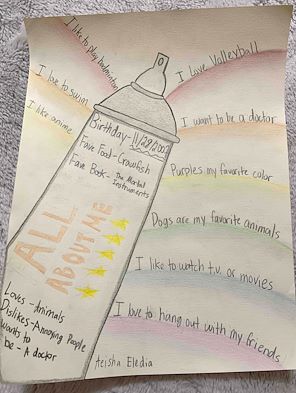 I like to play badminton
I love Volleyball
I love to swim
I want to be a doctor
I like anime
Purples my favorite color
Dogs are my favorite animals
I like to watch t.v. or movies
I love to hang out with my friends
Birthday- 11/29/2002
Fave Food- Crawfish
Fave Book- The Mortal
Instruments
ALL
ABOUT ME
Loves - Animals
Dislikes-Annoying People
wants to
be - A doctor
teisha Eledia